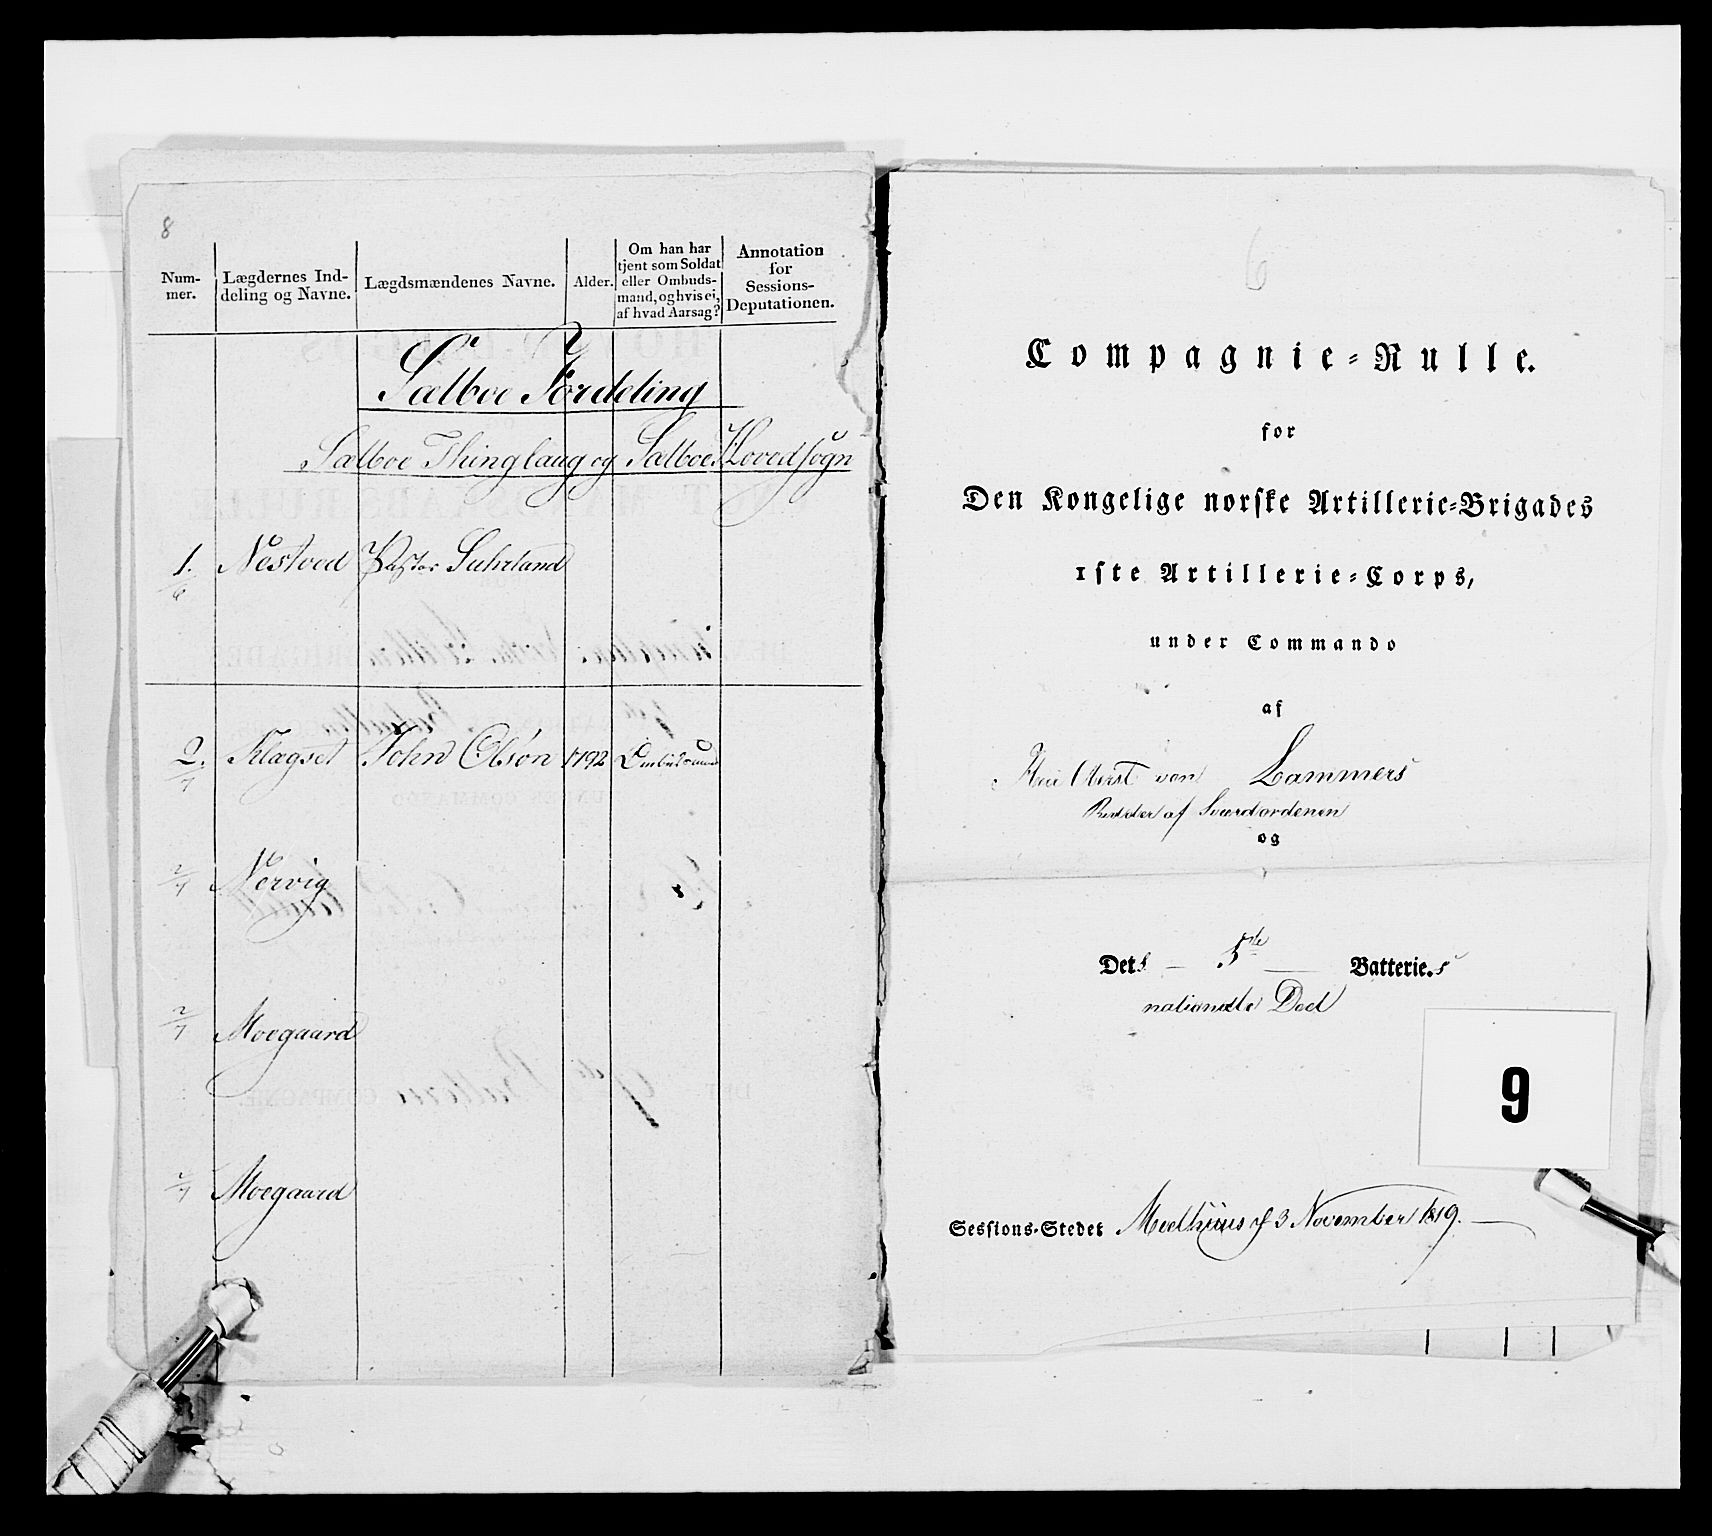 8
Num-
mer.
Lægdernes Ind-
deling og Navne.
Lægdsmændenes Navne.
Alder.
Om han har
tjent som Soldat
eller Ombuds-
mand, og hvis ei,
af hvad Aarsag?
Annotation
for
Sessions-
Deputationen.
Sælboe Fordeling
Sælboe Thinglaug og Sælboe Hovedsogn
1. Nestvod Pastor Suhrland
6
2. Klagset John Olsøn 1792 Ombudsmand
7
2/7 Nervig
2/7 Moegaard
2/7 Moegaard
6
Compagnie-Rulle.
for
Den Kongelige norske Artillerie-Brigades
1ste Artillerie-Corps,
under Commando
af
Herr Oberst von Lammers
Ridder af Sværdordenen
og
Dets 5te Batteries
nationale Deel
9
Sessions-Stedet Meelhuus d 3 November 1819.